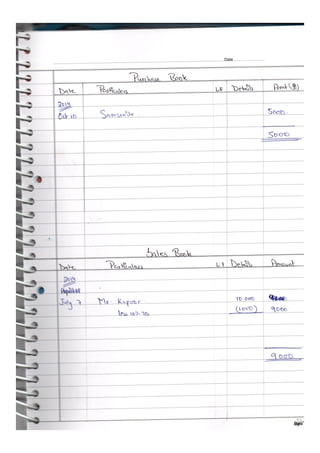 Date
Purchase Book
Date Particulars LF Details Amt(₹)
2019
Oct 10 Samsonite 5000
5000
Sales Book
Date Particulars LF Details Amount
2019
July 7 Mr Kapoor 10000
less 10% TD (1000) 9000
9000